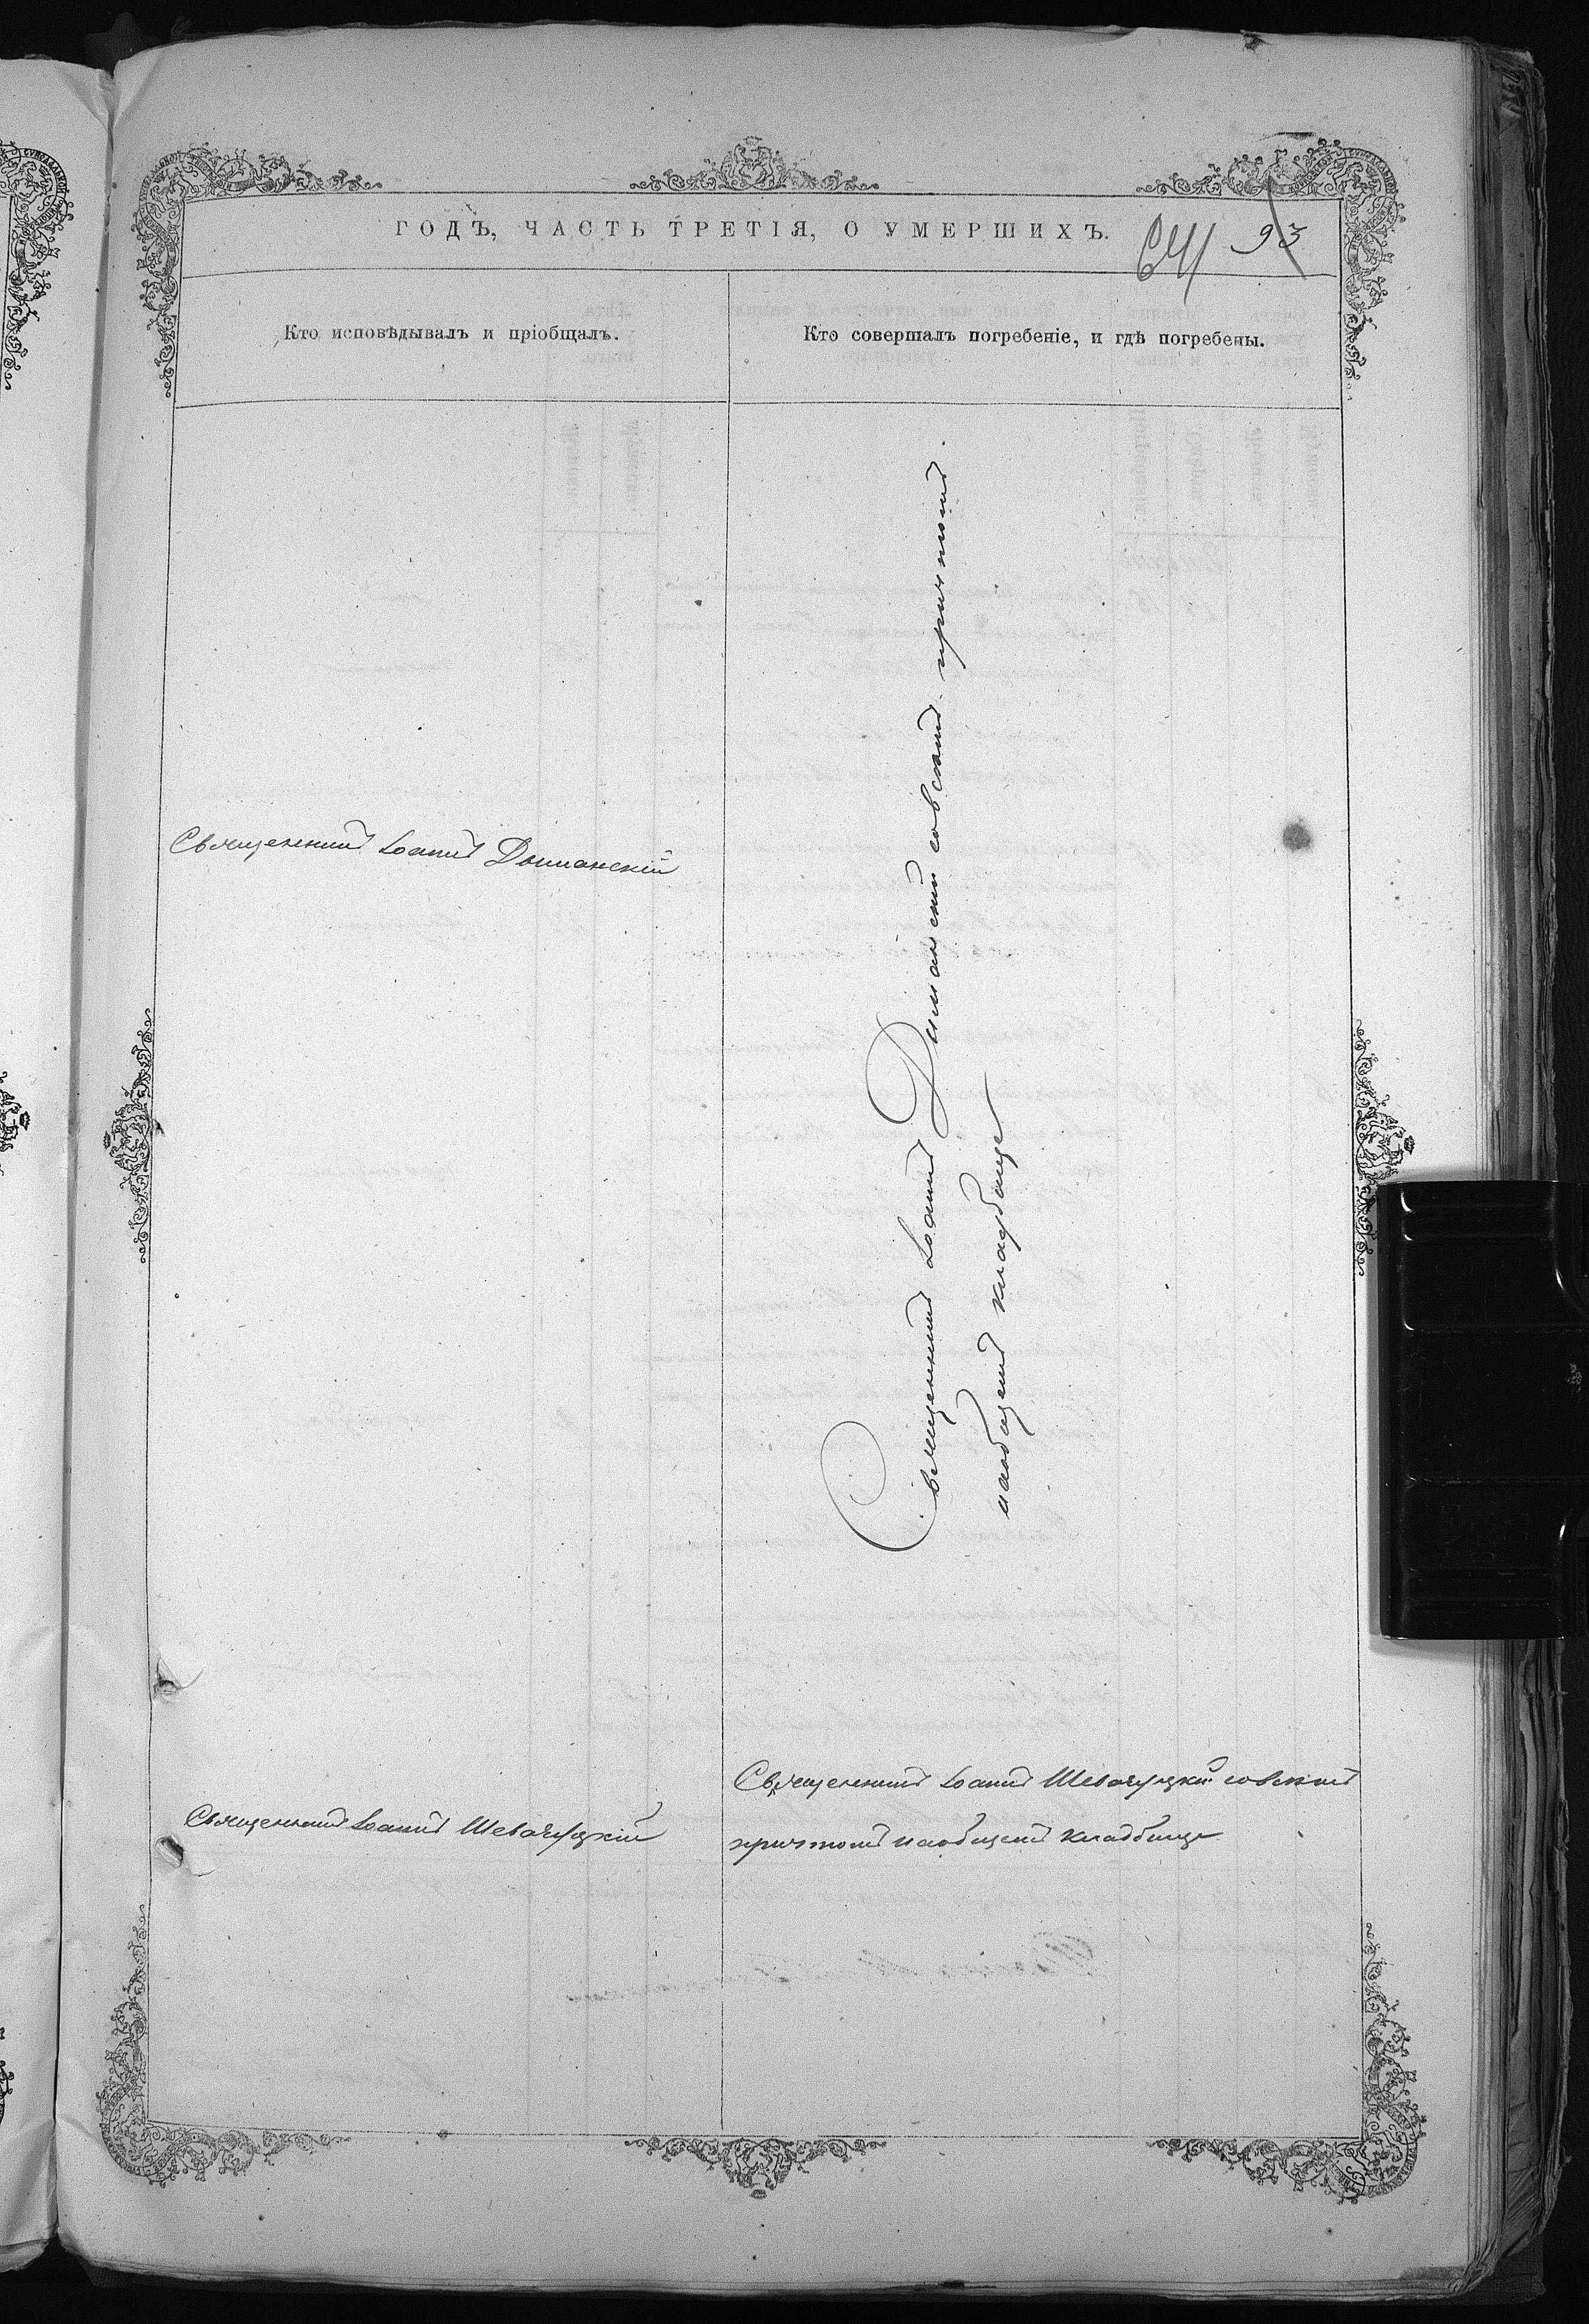 ГОДЪ, ЧАСТЬ ТРЕТІЯ, О УМЕРШИХЪ.
93
Кто исповѣдывалъ и пріобщалъ.
Кто совершалъ погребеніе, и гдѣ погребены.
Священникъ Іоаннъ Дыманскій
Священникъ Іоаннъ Дыманскій совсѣмъ причтомъ
наобщемъ кладбище
Священникъ Іоаннъ
Священникъ Іоаннъ совсѣмъ
причтомъ наобщемъ кладбище